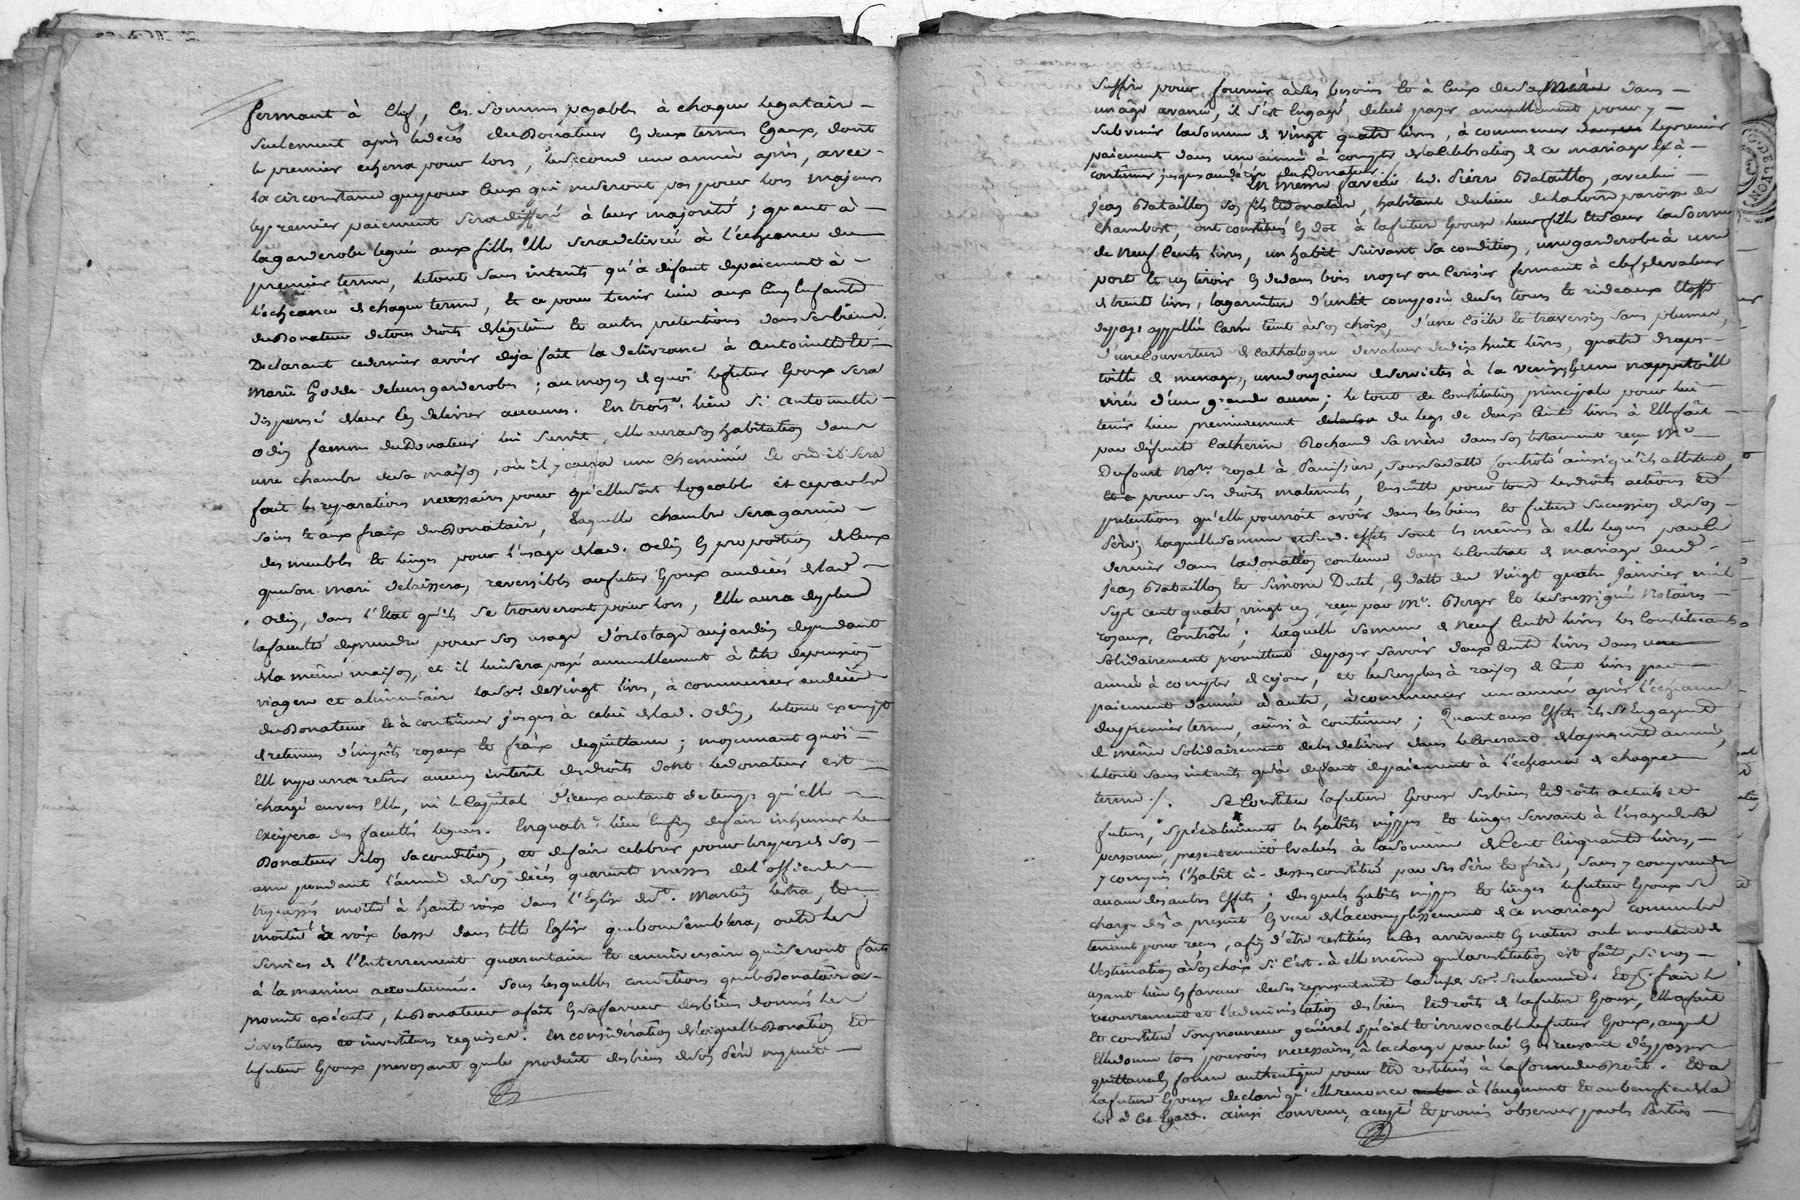 fermant à clef, les sommes payables à chaque legataire
seulement après le decès du Donateur en deux termes egaux, dont
le premier echerra pour lors, le second une année après, avec
la circonstance que pour ceux qui ne seront pas pour lors majeurs
le premier paiement sera differé à leur majorité ; quant à
la garderobe leguée aux filles elle sera delivrée à l'echeance du
premier terme, le tout sans interets qu'à defaut de paiement à
l'echeance de chaque terme, et ce pour tenir lieu aux cinq enfants
du Donateur de tous droits de légitime et autres pretentions dans ses biens.
Declarant ce dernier avoir deja fait la delivrance à Antoinette et
Marie Godde de leurs garderobes ; au moyen de quoi le futur Epoux sera
dispensé de leur en delivrer aucunes. En trois.e lieu si Antoinette
Odin femme du Donateur lui survit, elle aura son habitation dans
une chambre de sa maison, où il y aura une cheminée et où il sera
fait les reparations necessaires pour qu'elle soit logeable et ce par les
soins et aux fraix du Donataire, laquelle chambre sera garnie
des meubles et linges pour l'usage de lad. Odin en proportion de ceux
que son mari delaissera, reversibles au futur Epoux au decès de lad.
Odin, dans l'etat qu'ils se trouveront pour lors, Elle aura de plus
la faculté de prendre pour son usage d'ortolage au jardin dependant
de la même maison, et il lui sera payé annuellement à titre de pension
viagere et alimentaire la so.e de vingt livres, à commencer au decès
du Donateur et à continuer jusques à celui de lad. Odin, le tout exempt
de retenues d'impôts royaux et fraix de quittance ; moyennant quoi
Elle ne pourra retirer aucun interet des droits dont le donateur est
chargé envers Elle, ni le capital d'iceux autant de temps qu'elle
excipera des facultés leguées. En quatr.e lieu enfin de faire inhumer le
Donateur selon sa condition, et de faire celebrer pour le repos de son
ame pendant l'année de son decès quarante messes de l'office des
trepassés moitié à haute voix dans l'Eglise de S.t Martin Lestra, et
moitié à voix basse dans telle Eglise que bon semblera, outre les
services de l'Enterrement quarantaine et anniversaire qui seront faits
à la maniere accoutumée. Sous lesquelles conditions que le Donataire a
promit executer, le Donateur a fait en sa faveur des biens donnés les
devestitures et investitures requises. En consideration de laquelle Donation et
le futur Epoux prevoyant que le produit des biens de son Père ne peut
suffire pour fournir à ses besoins et à ceux de sa Mère dans
un âge avancé, il s'est engagé, de lui payer annuellement pour y
subvenir la somme de vingt quatre livres, à commencer le premier
paiement dans une année à compter de la celebration de ce mariage et à
continuer jusques au decès du Donateur.
En meme faveur led. Pierre Bataillon, avec lui
Jean Bataillon son fils et donataire, habitant du lieu de la loire paroisse de
Chambost, ont constitué en dot à la future Epouse leur fille et sœur la somme
de neuf cents livres, un habit suivant sa condition, une garderobe à une
porte et un tiroir en dedans bois noyer ou cerisier fermant à clef de valeur
de trente livres, la garniture d'un lit composée de ses tours et rideaux étoffe
du pays appellée Carré teint à son choix, d'une coitte et traversin sans plumes,
d'une couverture de Cathalogne de valeur de dix huit livres, quatre draps
toille de menage, une douzaine de serviettes à la Venise, une nappe toille
ouvrée d'une grande aune ; le tout de constitution principale pour lui
tenir lieu premierement du legs de deux cents livres à Elle fait
par defunte Catherine Rochand sa mère dans son testament reçu M.e
Dufourt No.re royal à Panissière, sous sa datte Controlé ainsi qu'ils attestent
et ce pour ses droits maternels, ensuitte pour tous les droits actions et
pretentions qu'elle pourroit avoir dans les biens et future succession de son
Père ; laquelle somme et susd. effets sont les mêmes à elle legués par le
dernier dans la donation contenue dans le Contrat de mariage dud.
Jean Bataillon et Simone Dutel, en datte du vingt quatre Janvier mil
sept cent quatre vingt un, reçu par M.e Berger et le soussigné Notaires
royaux, Controlé ; laquelle somme de neuf cents livres les Constituants
solidairement promettent de payer, savoir deux cents livres dans une
année à compter de ce jour, et le surplus à raison de cent livres par
paiement d'année à autre, à commencer une année après l'echeance
du premier terme, ainsi à continuer ; Quant aux Effets ils s'Engagent
de même solidairement de les delivrer dans le courant de la presente année,
le tout sans interets qu'à defaut de paiement à l'echeance de chaque
terme ./. Se Constitue la future Epouse ses biens et droits actuels et
futurs, specialement les habits nippes et linges servant à l'usage de sa
personne, presentement evalués à la somme de Cent cinquante livres,
y compris l'habit ci-dessus constitué par ses Père et frère, sans y comprendre
aucun des autres Effets ; desquels habits nippes et linges le futur Epoux se
charge dès a present en vue de l'accomplissement de ce mariage comme les
tenant pour reçus, afin d'être restitués le cas arrivant en nature ou le montant de
l'estimation à son choix si c'est à elle même que la restitution est faite, si non
ayant lieu en faveur de ses representants la susd. so.e seulement. Et p.r faire le
recouvrement et l'administration des biens et droits de la future Epouse, Elle a fait
et constitué son procureur général special et irrevocable le futur Epoux, auquel
Elle donne tous pouvoirs necessaires, à la charge par lui en les recevant d'en passer
quittance en forme authentique pour etre restitués à la forme du Droit. Et a
la future Epouse declaré qu'elle renonce à l'augment et au benefice de la
loi à cet Egard. ainsi convenu, accepté et promis observer par les Parties